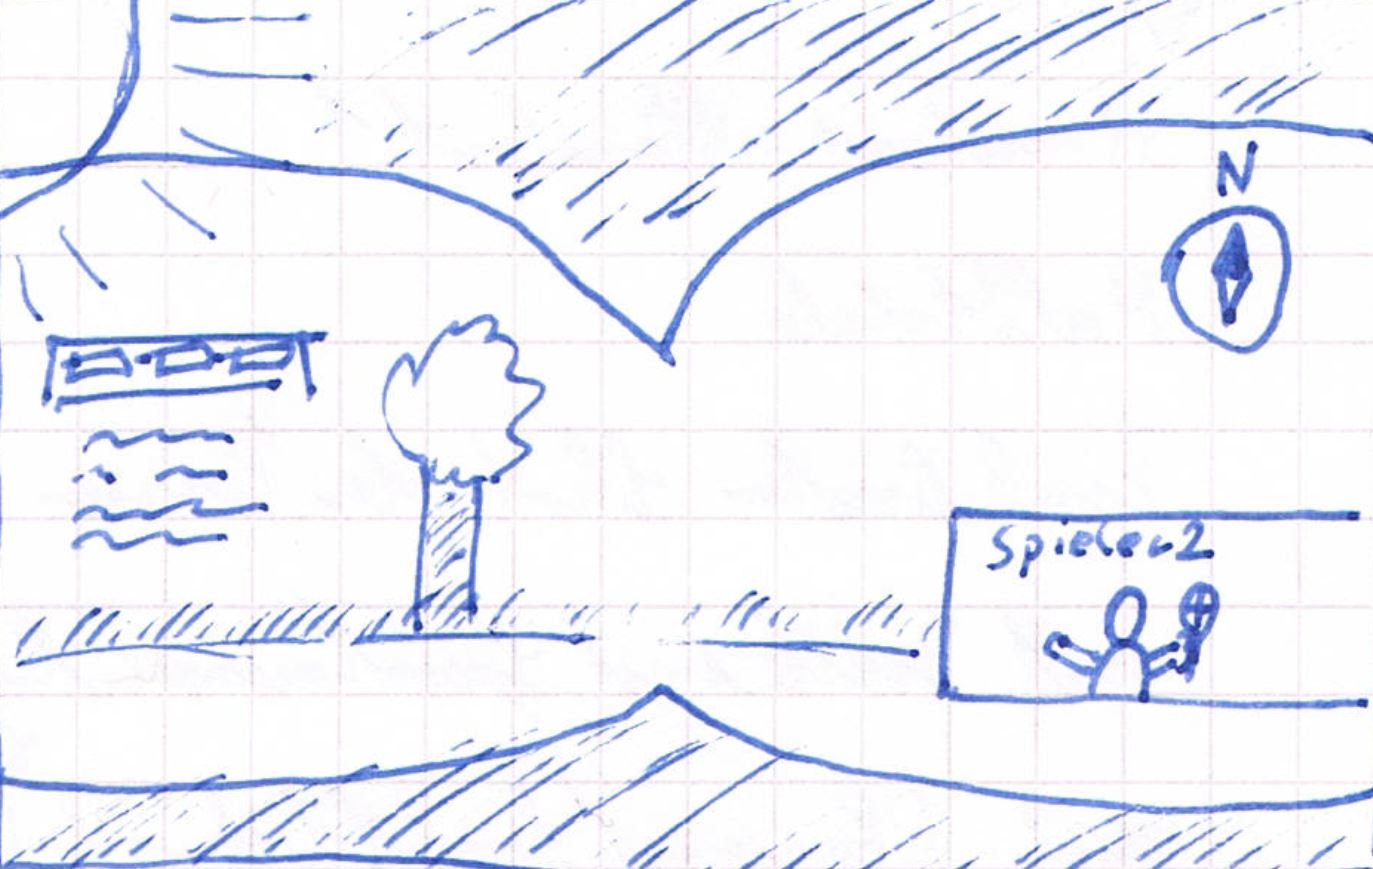 N
Spieler 2